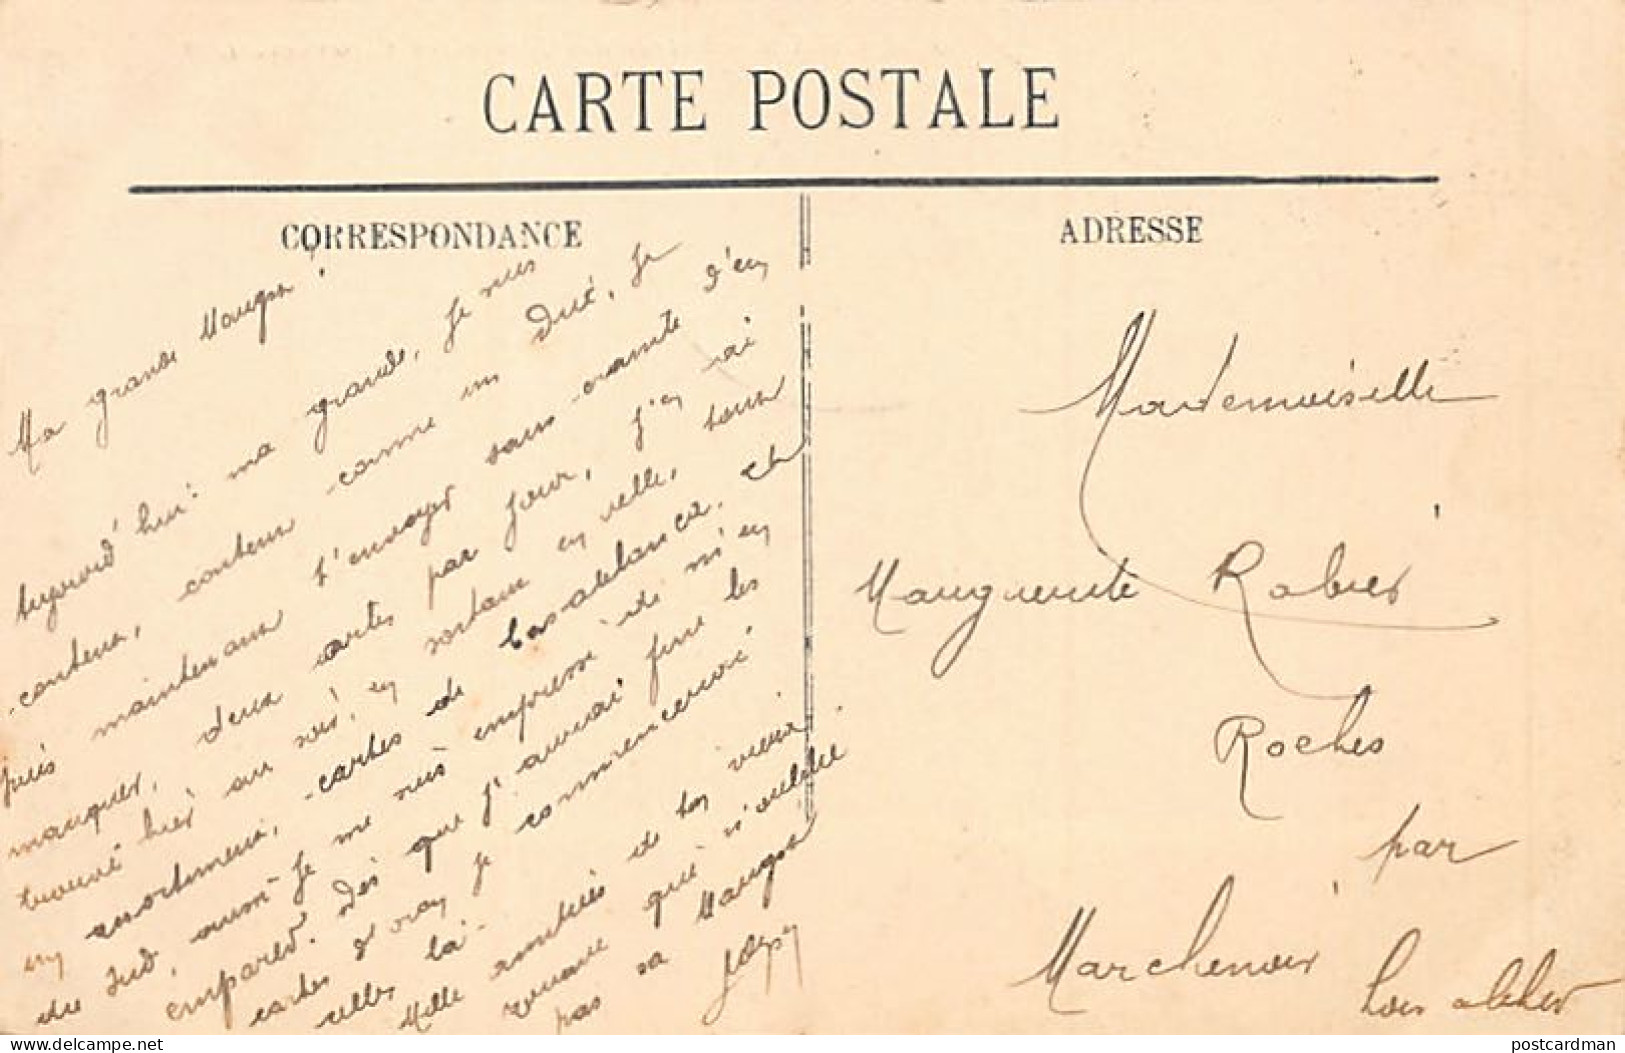 CARTE POSTALE
CORRESPONDANCE
Ma grande Maugon !
Aujourd'hui ma grande, je suis
contente, contente comme un Dieu, je
puis maintenant t'envoyer sans crainte d'en
manquer, deux cartes par jour, j'en ai
trouvé hier au soir, en sortant en ville, tout
un assortiment, cartes de Casablanca, et
du Sud, aussi je me suis empressé de m'en
emparer. Dès que j'aurai fini les
cartes d'Oran je commencerai
celles là.
Mille amitiés de ton vieux
qui n'oublie
pas sa Maugon
ADRESSE
Mademoiselle
Marguerite Rabier
Roches
par
Marchenoir
Loir et Cher
delcampe.net
postcardman